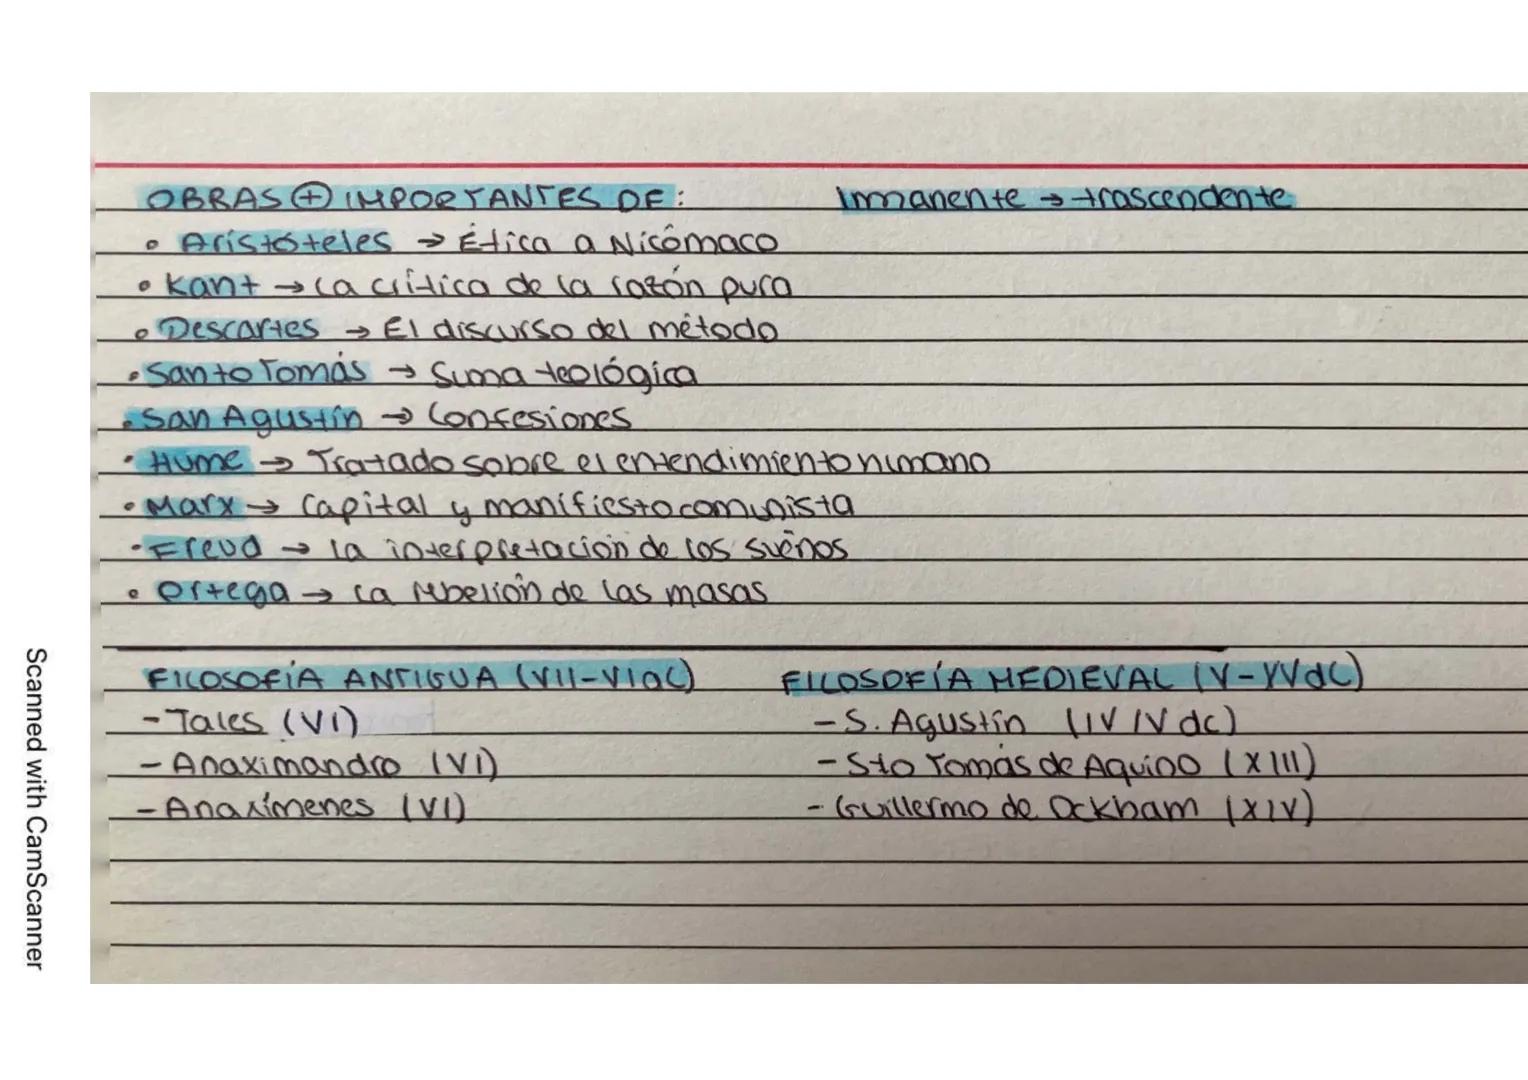 OBRAS ⊕ IMPORTANTES DE:
Inmanente → trascendente
• Aristóteles → Ética a Nicómaco
• Kant → La crítica de la razón pura
• Descartes → El discurso del método
• Santo Tomás → Suma teológica
• San Agustín → Confesiones
• Hume → Tratado sobre el entendimiento humano
• Marx → Capital y manifiesto comunista
• Freud → La interpretación de los sueños
• Ortega → La rebelión de las masas
FILOSOFÍA ANTIGUA (VII-VI aC)
- Tales (VI)
- Anaximandro (VI)
- Anaxímenes (VI)
FILOSOFÍA MEDIEVAL (V-XV dC)
- S. Agustín (IV/V dc)
- Sto Tomás de Aquino (XIII)
- Guillermo de Ockham (XIV)
Scanned with CamScanner